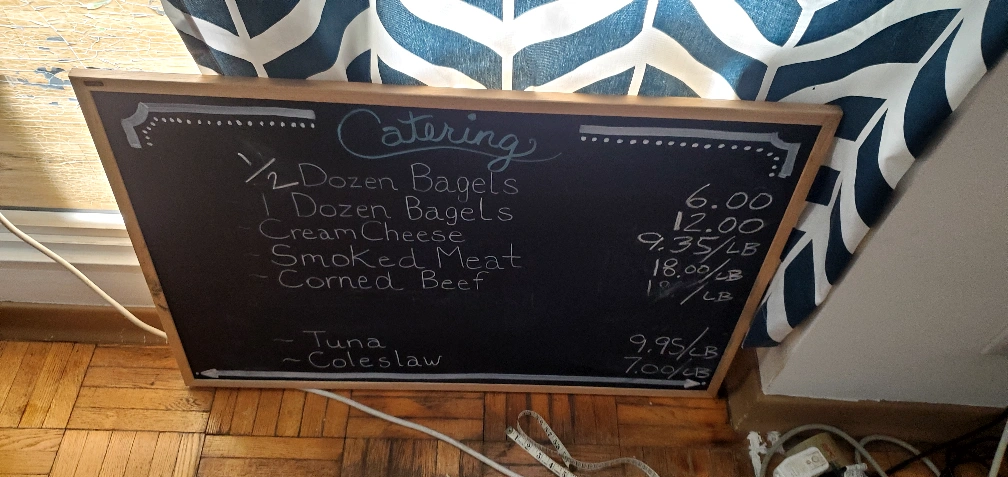 Catering
1/2 Dozen Bagels 6.00
1 Dozen Bagels 12.00
Cream Cheese 9.35/LB
- Smoked Meat 18.00/LB
- Corned Beef /LB
- Tuna 9.95/LB
~ Coleslaw 7.00/LB